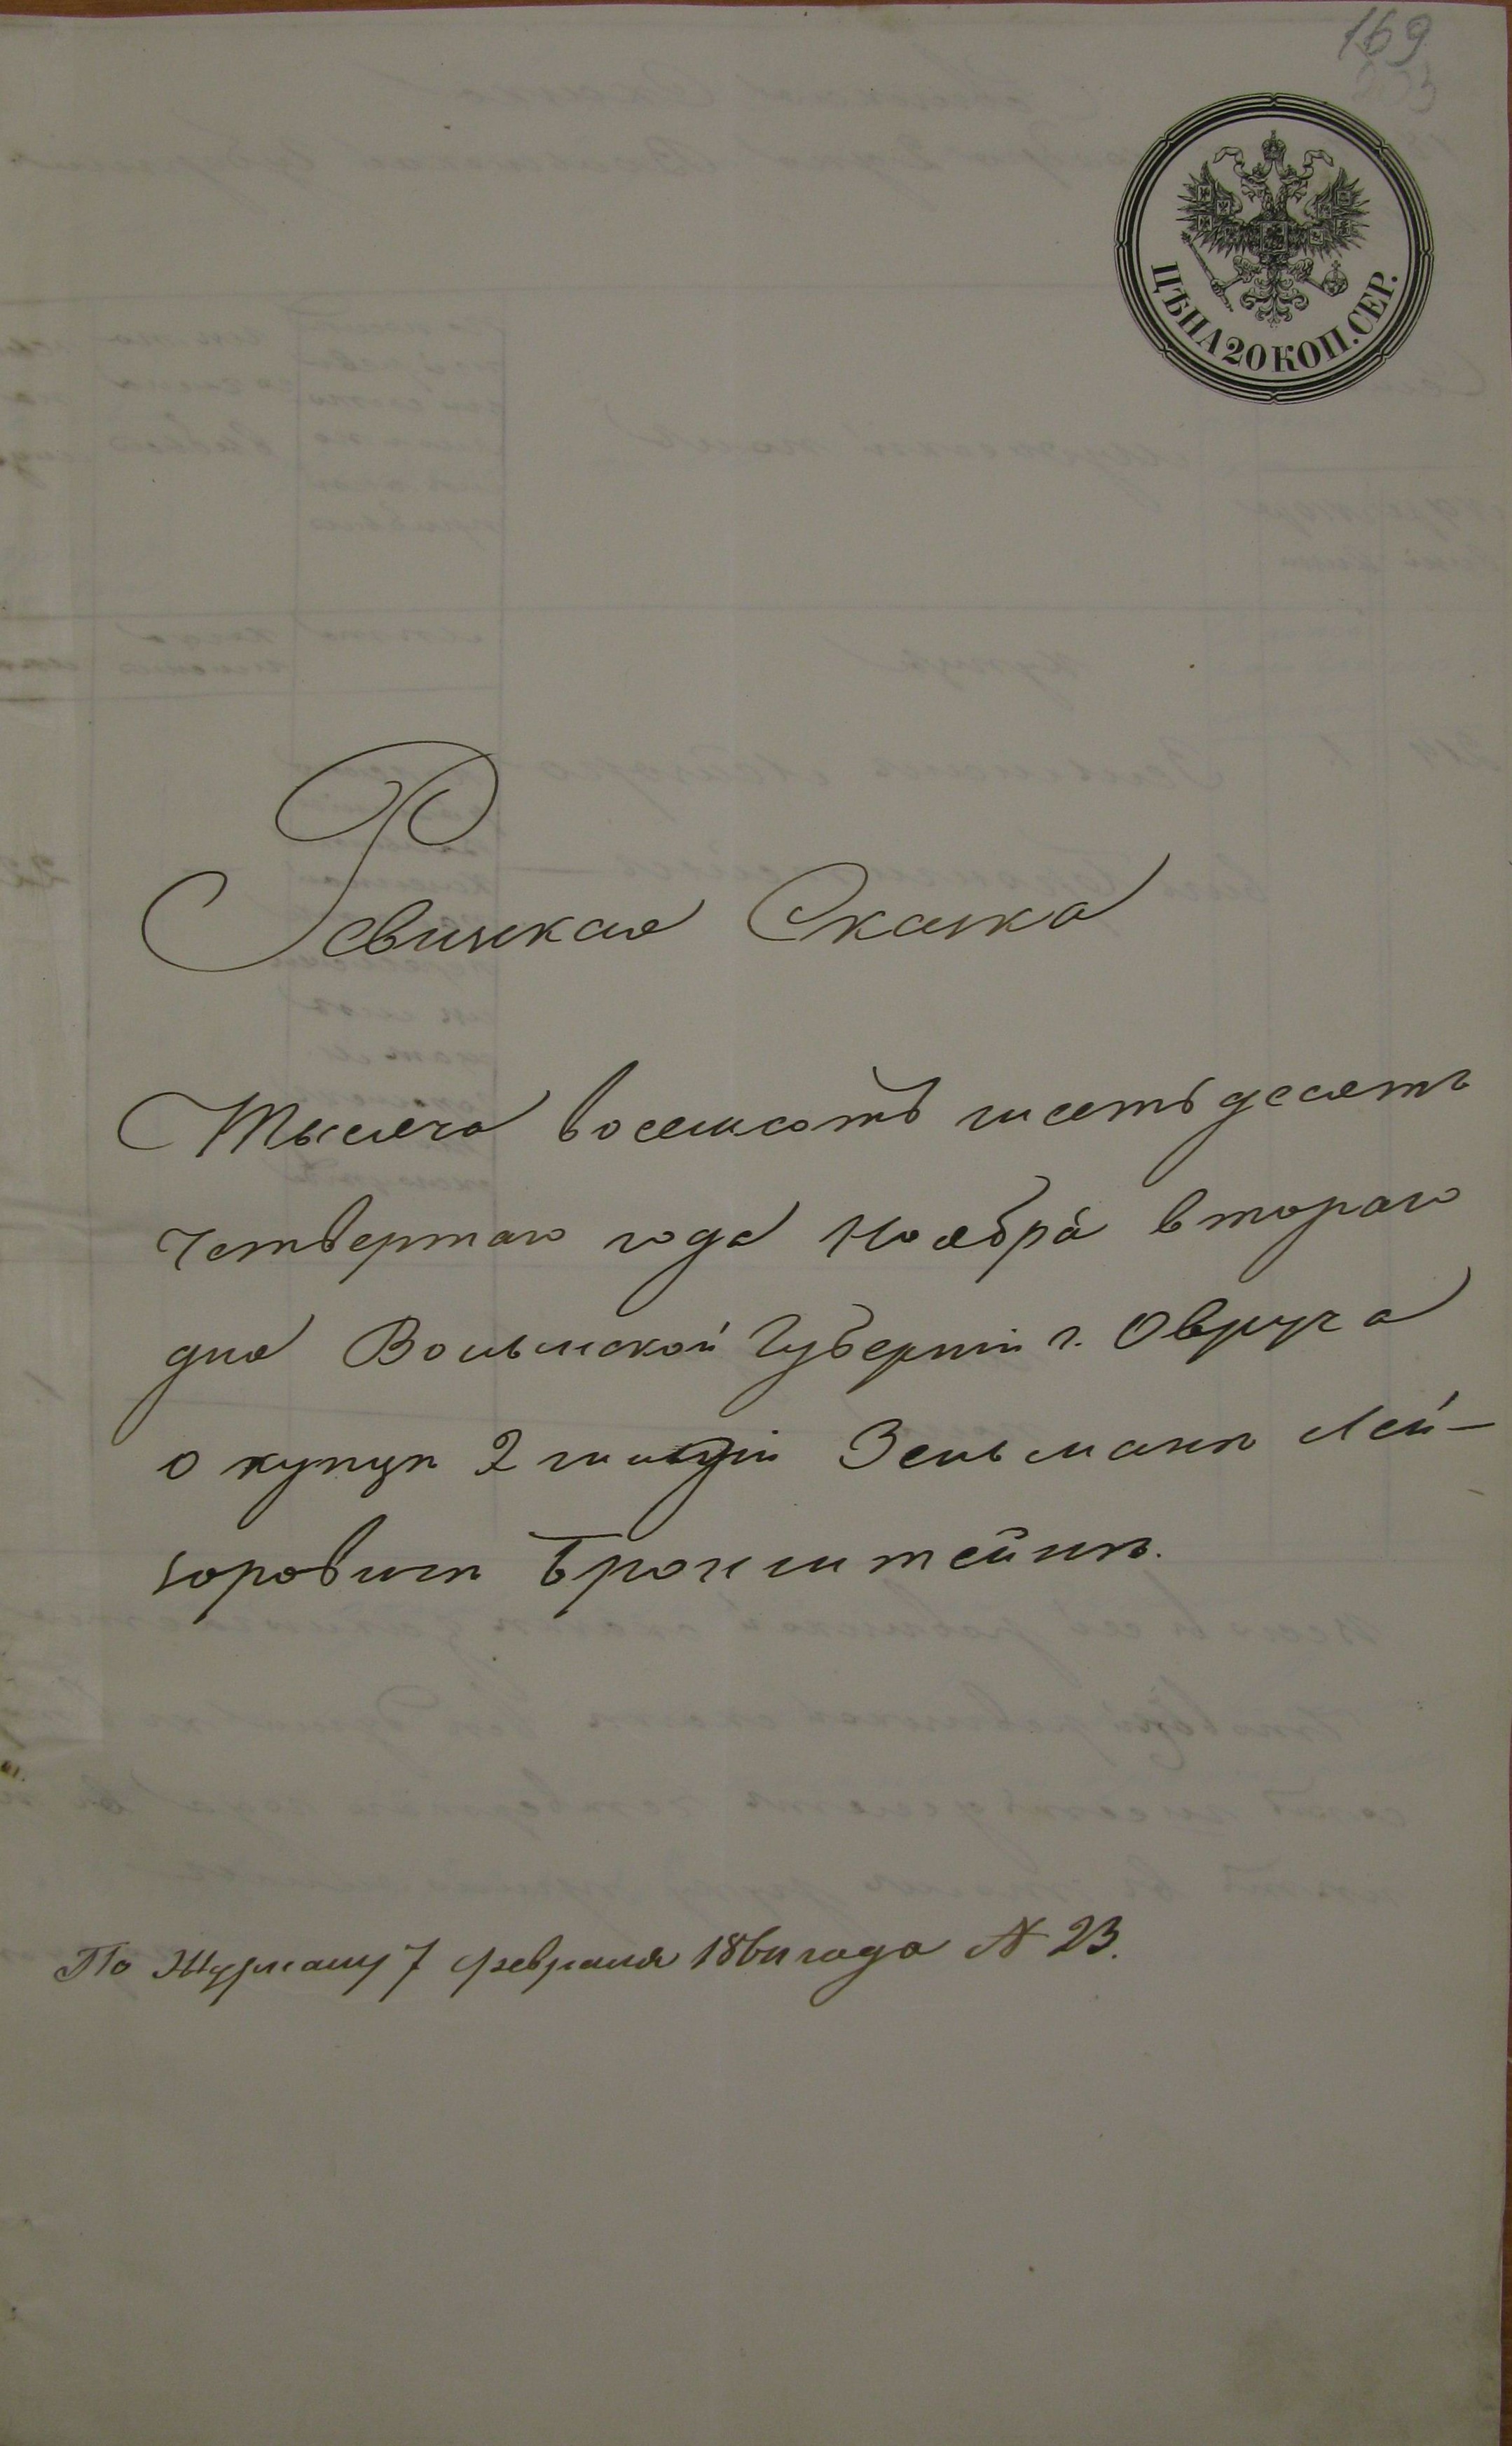 169
ЦѢНА 20 КОП. СЕР.
Ревизкая Сказка
Тысяча восемсотъ шестьдесятъ
четвертаго года Ноября втораго
дня Волынской Губерніи г. Овруча
о купцѣ 2 гильдіи Зельманѣ Лей-
зоровичѣ Бронштейнѣ.
По Журналу 7 февраля 186 года N 23.